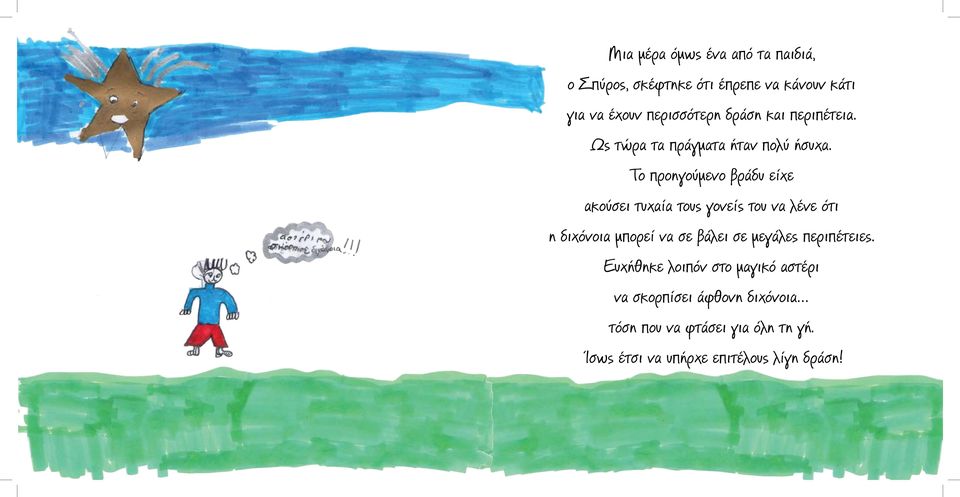 Μια μέρα όμως ένα από τα παιδιά,
ο Σπύρος, σκέφτηκε ότι έπρεπε να κάνουν κάτι
για να έχουν περισσότερη δράση και περιπέτεια.
Ως τώρα τα πράγματα ήταν πολύ ήσυχα.
Το προηγούμενο βράδυ είχε
ακούσει τυχαία τους γονείς του να λένε ότι
η διχόνοια μπορεί να σε βάλει σε μεγάλες περιπέτειες.
Ευχήθηκε λοιπόν στο μαγικό αστέρι
να σκορπίσει άφθονη διχόνοια...
τόση που να φτάσει για όλη τη γή.
Ίσως έτσι να υπήρχε επιτέλους λίγη δράση!
αστέρι μου
διχόνοια!!!